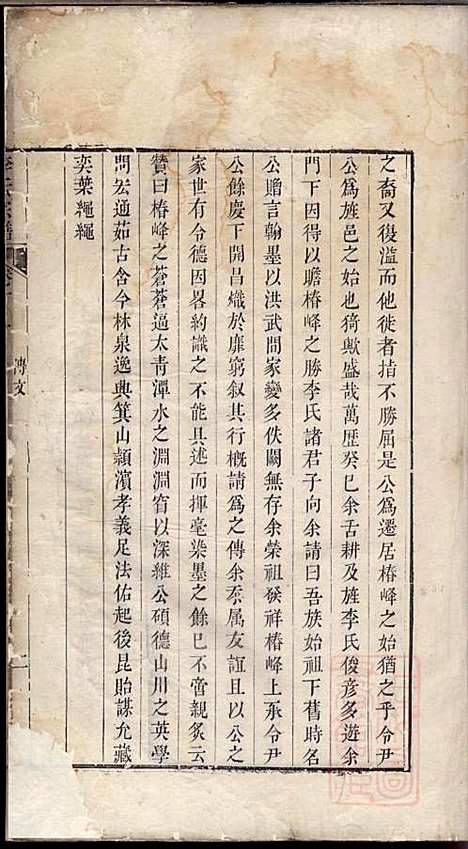 之裔又復溢而他徙者拮不勝屈是公為遷居椿峰之始猶之乎令尹
公為旌邑之始也猗歟盛哉萬歷癸巳余舌耕及旌李氏俊彥多遊余
門下因得以瞻椿峰之勝李氏諸君子向余請曰吾族始祖下舊時名
公贈言翰墨以洪武間家變多佚闕無存余榮祖發祥椿峰上承令尹
公餘慶下開昌熾於靡窮叙其行概請為之傳余忝属友誼且以公之
家世有令德因畧約識之不能具述而揮毫染墨之餘已不啻親炙云
贊曰椿峰之蒼蒼逼太青潭水之淵淵窅以深維公碩德山川之英學
問宏通茹古含今林泉逸興箕山潁濱孝義足法佑起後昆貽謀允藏
奕葉繩繩
傳文